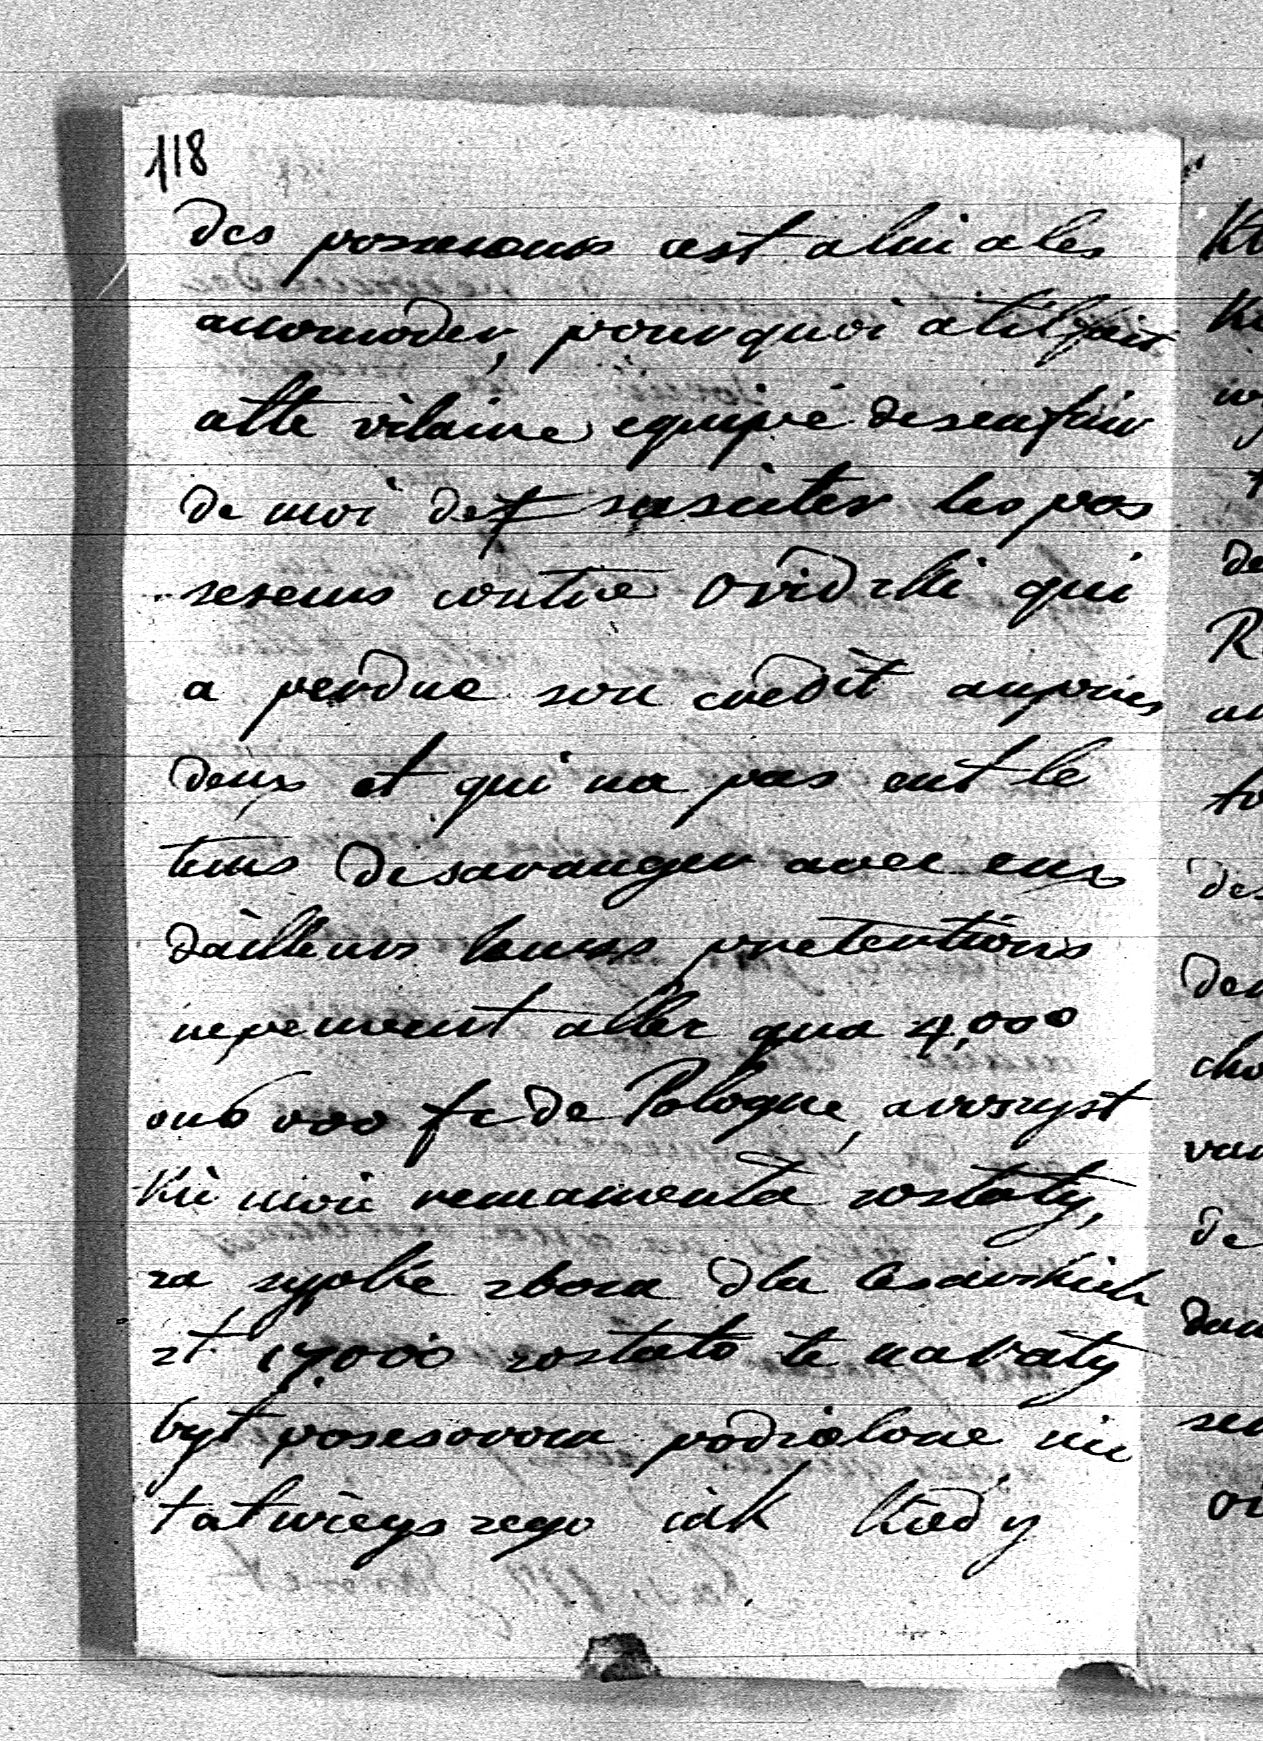 118
des possesseurs cest a lui a les
accomoder, pourquoi atil fait
cette vilaine equipé desenfuir
de moi de susciter les pos
seseurs contre Ovidzki qui
a perdue son credit aupries
deux et qui na pas eut le
tems desavanger avec eux
dailleurs leurs pretentions
nepeuvent aller qua 4,000
ou 6 000 fr de Pologne, a wszyst
kie moie remamenta zostaty,
za sypke zboza dla
zt 17000 zostato te
byt posesorom podzielone nic
tatwieyszego iak kiedy